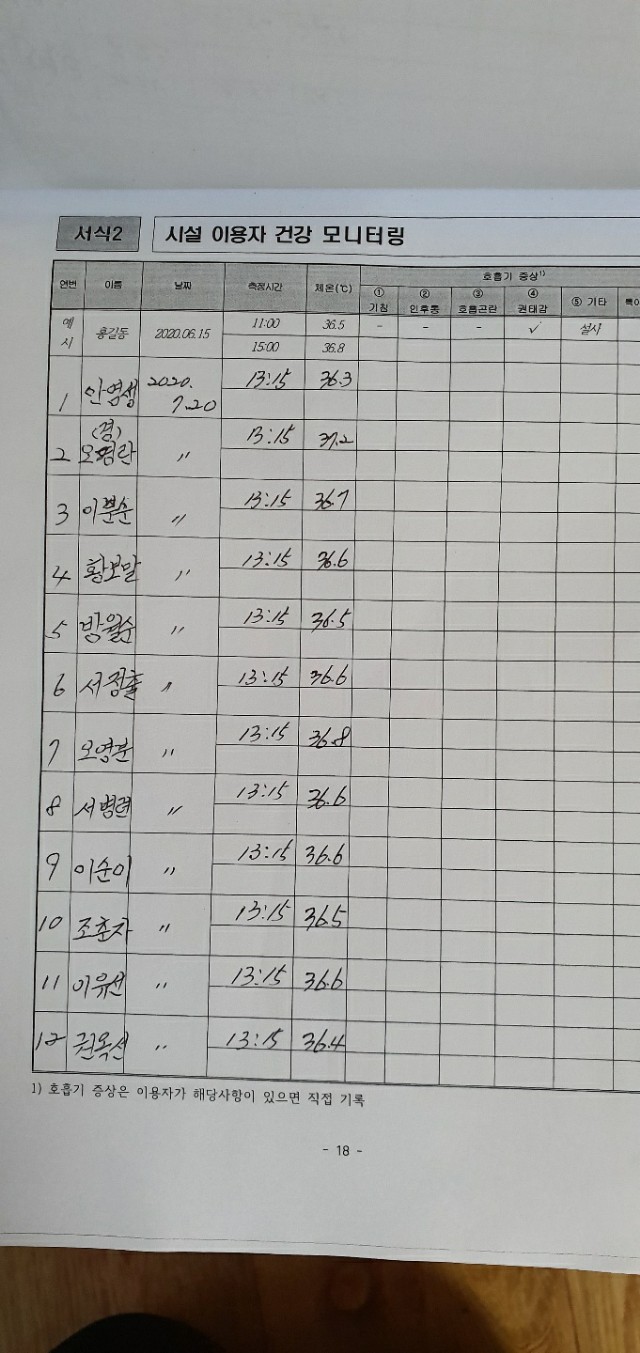 서식2 시설 이용자 건강 모니터링
연번 이름 날짜 측정시간 체온(℃) 호흡기 증상1)
① 기침 ② 인후통 ③ 호흡곤란 ④ 권태감 ⑤ 기타 특이
예시 홍길동 2020.06.15 11:00 36.5 - - - √ 설사
15:00 36.8
1 안염생 2020. 7.20 13:15 36.3
2 (경) 오명란 〃 13:15 37.2
3 이분순 〃 13:15 36.7
4 황보말 〃 13:15 36.6
5 방월순 〃 13:15 36.5
6 서정출 〃 13:15 36.6
7 오영분 〃 13:15 36.8
8 서병련 〃 13:15 36.6
9 이순이 〃 13:15 36.6
10 조춘자 〃 13:15 36.5
11 이유선 〃 13:15 36.6
12 권옥선 〃 13:15 36.4
1) 호흡기 증상은 이용자가 해당사항이 있으면 직접 기록
- 18 -